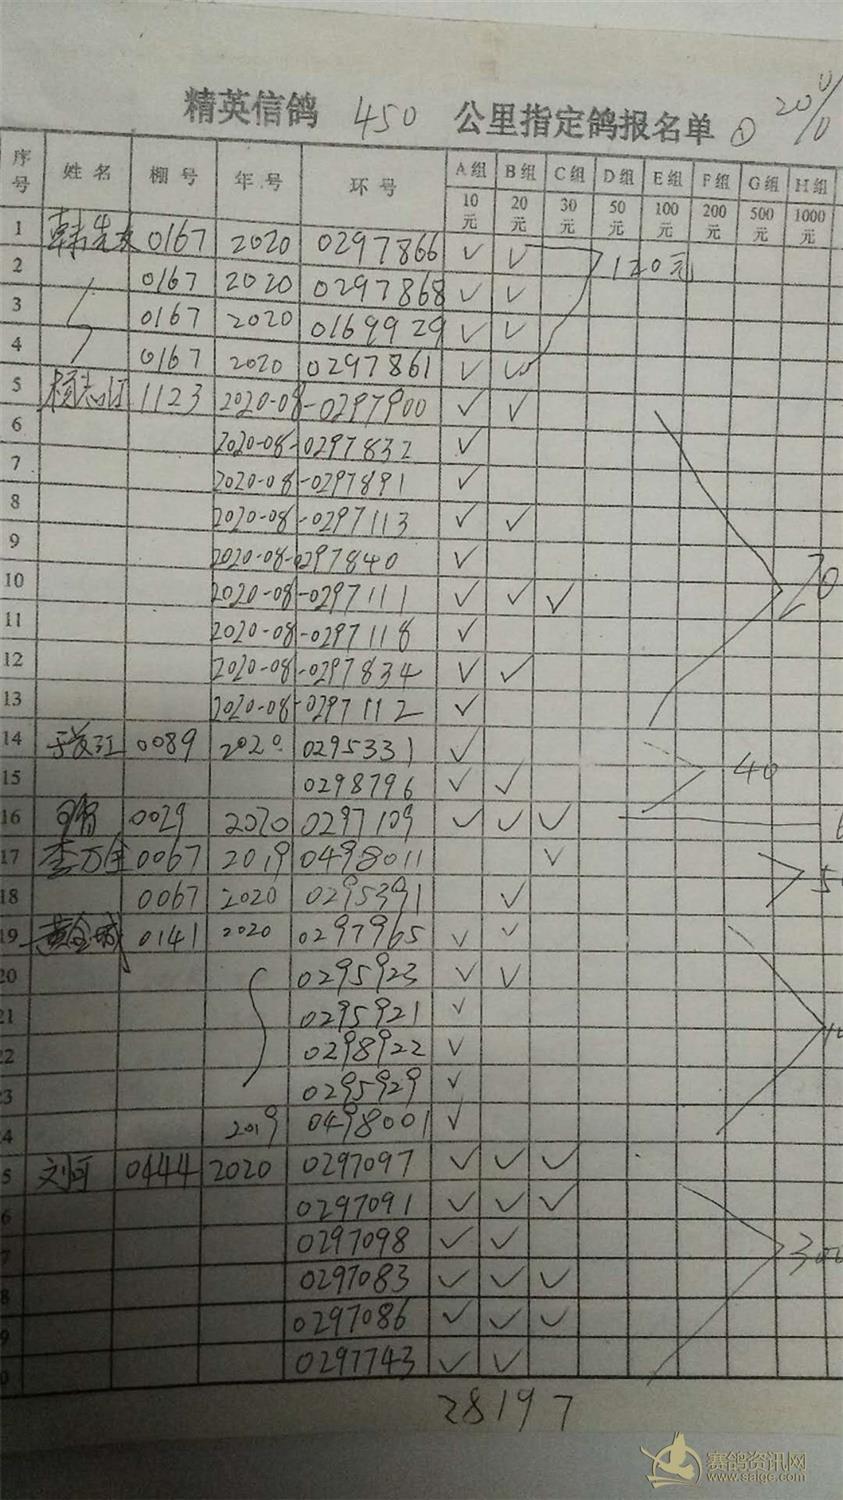 精英信鸽 450 公里指定鸽报名单 ① 20%
序号 姓名 棚号 年号 环号 A组 B组 C组 D组 E组 F组 G组 H组
10元 20元 30元 50元 100元 200元 500元 1000元
1 0167 2020 0297866 ✓ ✓ 120元
2 0167 2020 0297868 ✓ ✓
3 0167 2020 0169929 ✓ ✓
4 0167 2020 0297861 ✓ ✓
5 1123 2020-08-0297900 ✓ ✓
6 2020-08-0297832 ✓
7 2020-08-0297891 ✓
8 2020-08-0297113 ✓ ✓
9 2020-08-0297840 ✓
10 2020-08-0297111 ✓ ✓ ✓
11 2020-08-0297118 ✓
12 2020-08-0297834 ✓ ✓
13 2020-08-0297112 ✓
14 0089 2020 0295331 ✓
15 0298796 ✓ ✓ 40
16 0029 2020 0297109 ✓ ✓ ✓
17 李万全 0067 2019 0498011 ✓
18 0067 2020 0295391 ✓
19 黄金城 0141 2020 0297965 ✓ ✓
20 0295923 ✓ ✓
21 0295921 ✓
22 0298922 ✓
23 0295929 ✓
24 2019 0498001 ✓
5 刘河 0444 2020 0297097 ✓ ✓ ✓
6 0297091 ✓ ✓ ✓
7 0297098 ✓ ✓ 300
8 0297083 ✓ ✓ ✓
9 0297086 ✓ ✓ ✓
0 0297743 ✓ ✓
28197
赛鸽资讯网
www.saige.com